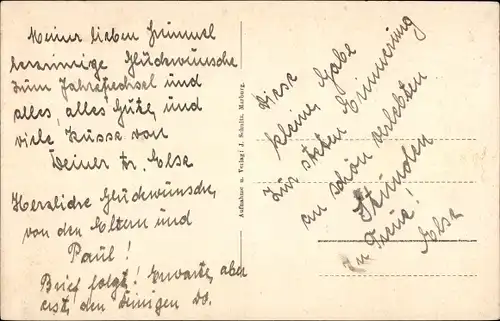 Meiner lieben Grimmel
herzinnige Glückwünsche
zum Jahreswechsel und
alles, alles Gute, und
viele Küsse von
Deiner tr. Else
Herzliche Glückwünsche,
von den Eltern und
Paul!
Brief folgt! Erwarte, aber
erst, den Deinigen
Aufnahme u. Verlag: J. Schultz, Marburg.
Diese
kleine, Gabe
Zur steten Erinnerung
an schön verlebten
Stunden
In Treue!
Else